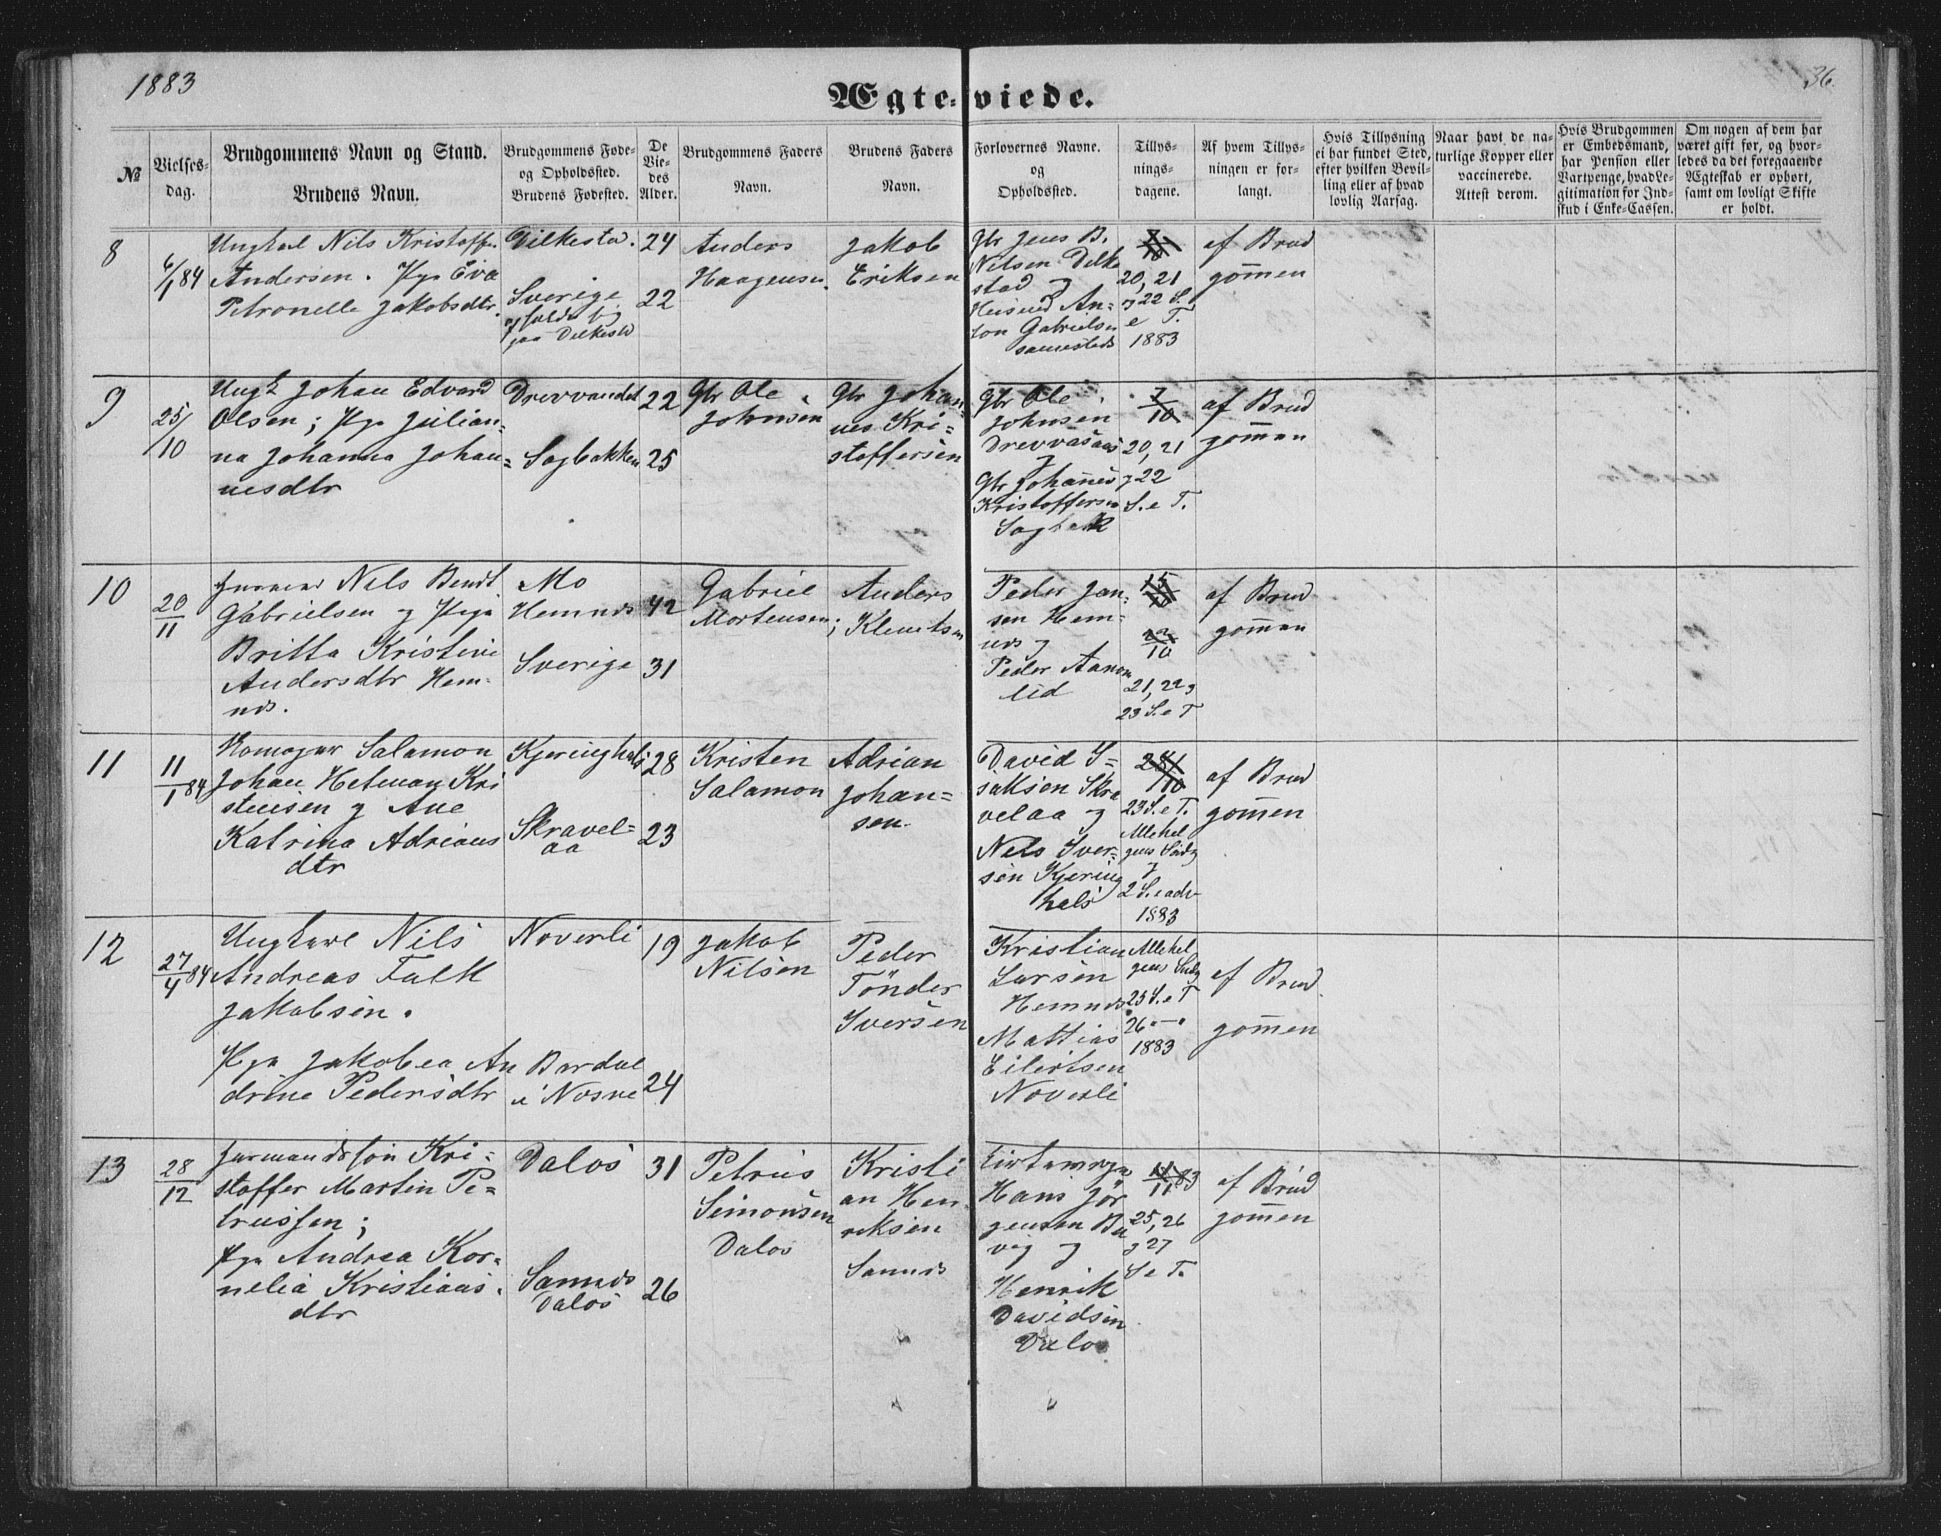 1883
Ægteviede.
36.
№
Vielses-
dag.
Brudgommens Navn og Stand.
Brudens Navn.
Brudgommens Føde-
og Opholdssted.
Brudens Fødested.
De
Vie-
des
Alder.
Brudgommens Faders
Navn.
Brudens Faders
Navn.
Forlovernes Navne.
og
Opholdssted.
Tillys-
nings-
dagene.
Af hvem Tillys-
ningen er for-
langt.
Hvis Tillysning
ei har fundet Sted,
efter hvilken Bevil-
ling eller af hvad
lovlig Aarsag.
Naar havt de na-
turlige Kopper eller
vaccinerede.
Attest derom.
Hvis Brudgommen
er Embedsmand,
har Pension eller
Vartpenge, hvad Le-
gitimation for Ind-
skud i Enke-Cassen.
Om nogen af dem har
været gift før, og hvor-
ledes da det foregaaende
Ægteskab er ophørt,
samt om lovligt Skifte
er holdt.
8
6/1 84
Ungkarl Nils Kristoffer
Andersen. Pige Eva
Petronelle Jakobsdtr.
Dilkestad.
Sverige
paa Dilkestd
24
22
Anders
Haagensen.
Jakob
Eriksen
Gbr Jens B.
Nilsen Dilke
stad og
Husmd An-
ton Gabrielsen
samesteds
20, 21
og 22 S.
e T.
1883
af Brud
gommen
9
25/10
Ungk Johan Edvard
Olsen; Pge Julian-
na Johanna Johan=
nesdtr
Drevvandet
Sagbakken
22
25
Gbr Ole
Johnsen
Gbr Johan-
nes Kri=
stoffersen
Gbr Ole
Johnsen
Drevvasaas
og
Gbr Johannes
Kristoffersen
Sagbakk
7/10
20, 21
og 22
S. e T.
af Brud
gommen
10
20/11
Nils Bendt
Gabrielsen og Pige
Britta Kristine
Andersdtr Hem-
nds.
Mo
Hemnds
Sverige
42
31
Gabriel
Mortensen;
Anders
Klemtsen
Peder Jan-
sen Hem-
nds og
Peder Aanon
lid
15/10
22/10
21, 22 og
23 S. e T
af Brud
gommen
11
11/1 84
Salamon
Johan Hetman Kri
stensen og Ane
Katrina Adrians
dtr
Kjeringhals
Skravel=
aa
28
23
Kristen
Salamon
Adrian
Johan=
sen.
David I=
saksen Skra
velaa og
Nels Iver=
sen Kjering
hals
28/10
23 S. e T.
Allehel
gens Søndg
og
2 S. e adv
1883
af Brud
gommen
12
27/4 84
Ungkarl Nils
Andreas Falk
Jakobsen.
Pige Jakobea An
drine Pedersdtr
Noverli
Bardal
i Nesne
19
24
Jakob
Nilsen
Peder
Tönder
Iversen
Kristian
Larsen
Hemnds
Mattias
Eilertsen
Noverli
Allehel
gens Sndg
25 S. e T
26 - " -
1883
af Brud
gommen
13
28/12
Kri-
stoffer Martin Pe=
trussen;
Pge Andrea Kor-
nelia Kristians.
dtr
Dalos
Sannds
Dalos
31
26
Petrus
Simonsen
Dalos
Kristi
an Hen
reksen
Sannds
Hans Jör
gensen Ba
vig og
Henrik
Davidsen
Dalos
11/11 83
25, 26
og 27
S e T.
af Brud
gommen